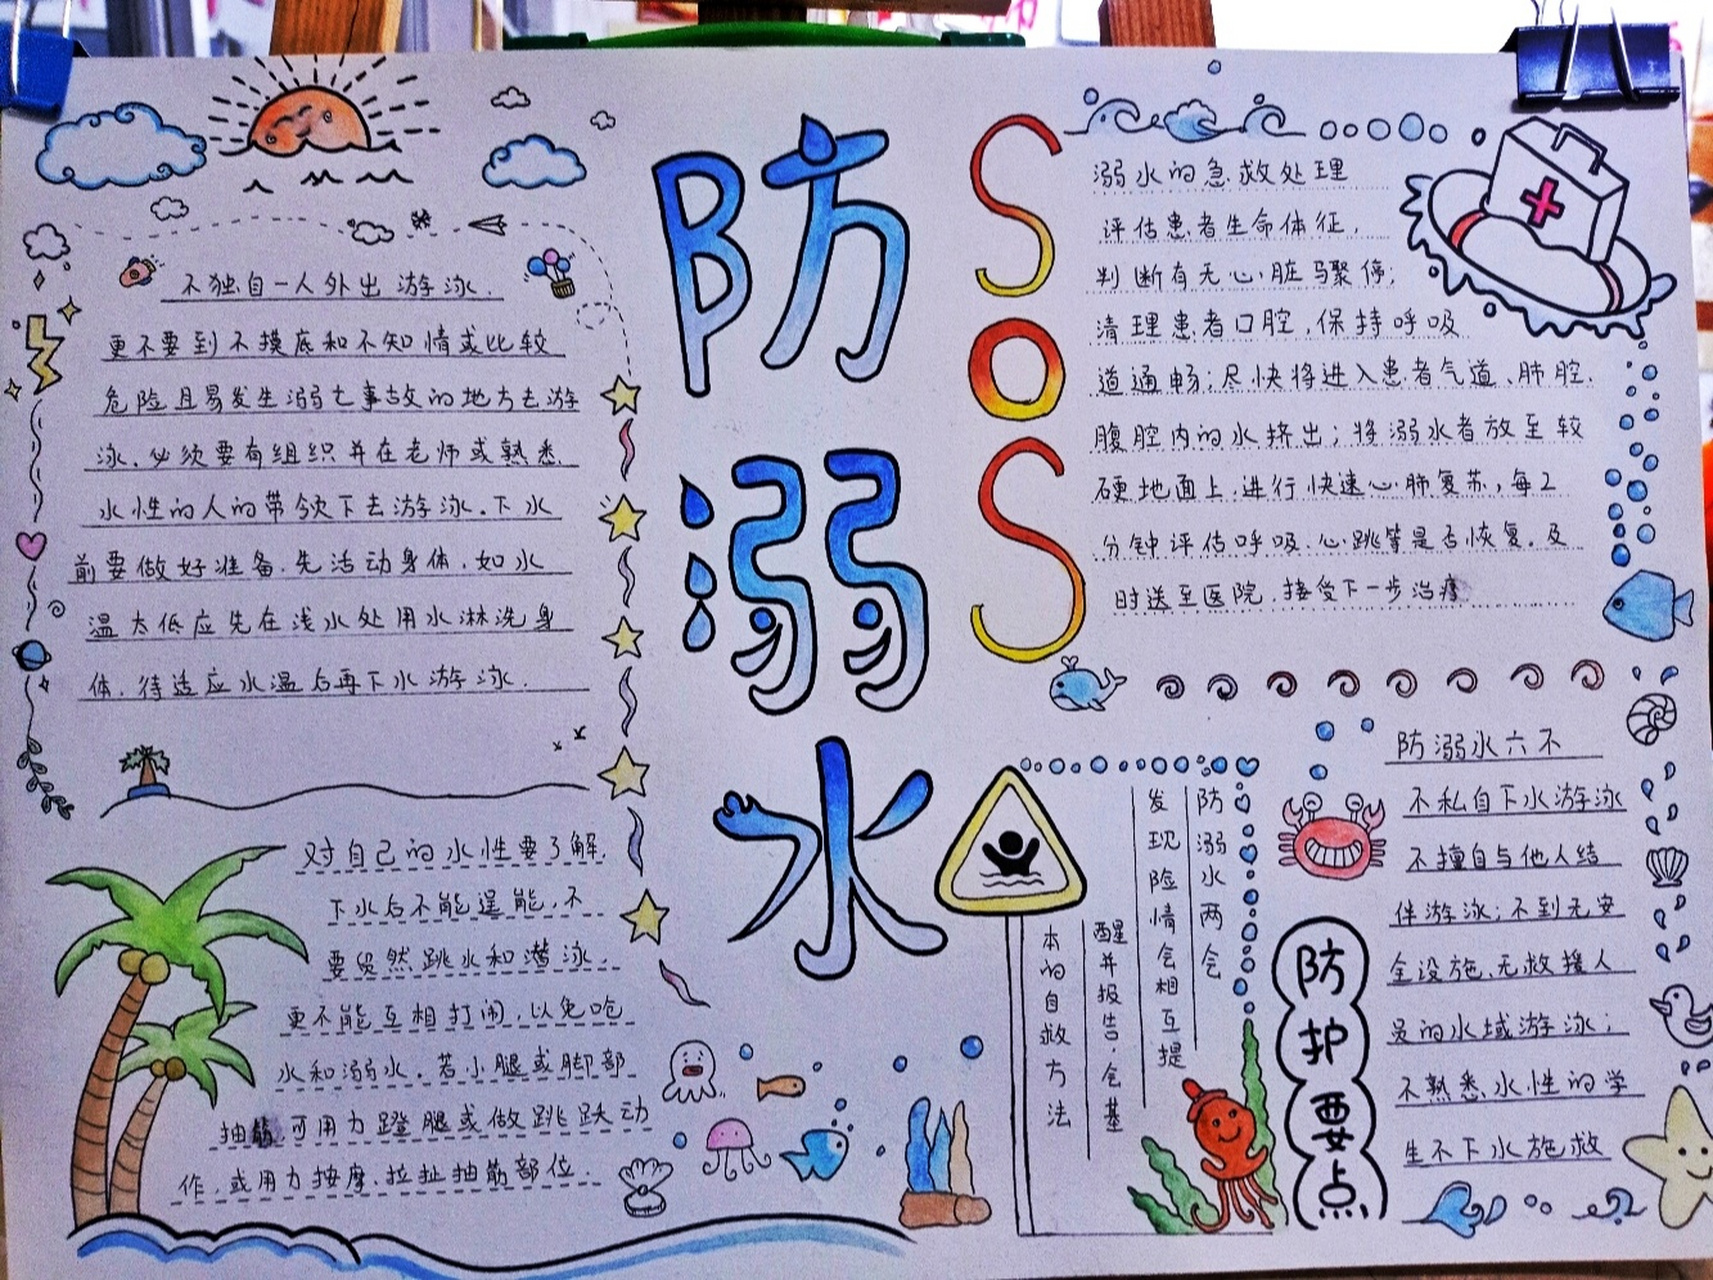 防溺水
不独自一人外出游泳.
更不要到不摸底和不知情或比较
危险且易发生溺亡事故的地方去游
泳.必须要有组织并在老师或熟悉
水性的人的带领下去游泳.下水
前要做好准备.先活动身体.如水
温太低应先在浅水处用水淋洗身
体.待适应水温后再下水游泳.
对自己的水性要了解.
下水后不能逞能,不
要贸然跳水和潜泳.
更不能互相打闹,以免呛
水和溺水.若小腿或脚部
抽筋,可用力蹬腿或做跳跃动
作,或用力按摩、拉扯抽筋部位.
SOS
溺水的急救处理
评估患者生命体征,
判断有无心脏骤停;
清理患者口腔,保持呼吸
道通畅;尽快将进入患者气道、肺腔、
腹腔内的水挤出;将溺水者放至较
硬地面上.进行快速心肺复苏,每2
分钟评估呼吸、心跳等是否恢复.及
时送至医院,接受下一步治疗
防溺水两会
发现险情会相互提
醒并报告.会基
本的自救方法
防护要点
防溺水六不
不私自下水游泳
不擅自与他人结
伴游泳;不到无安
全设施、无救援人
员的水域游泳;
不熟悉水性的学
生不下水施救